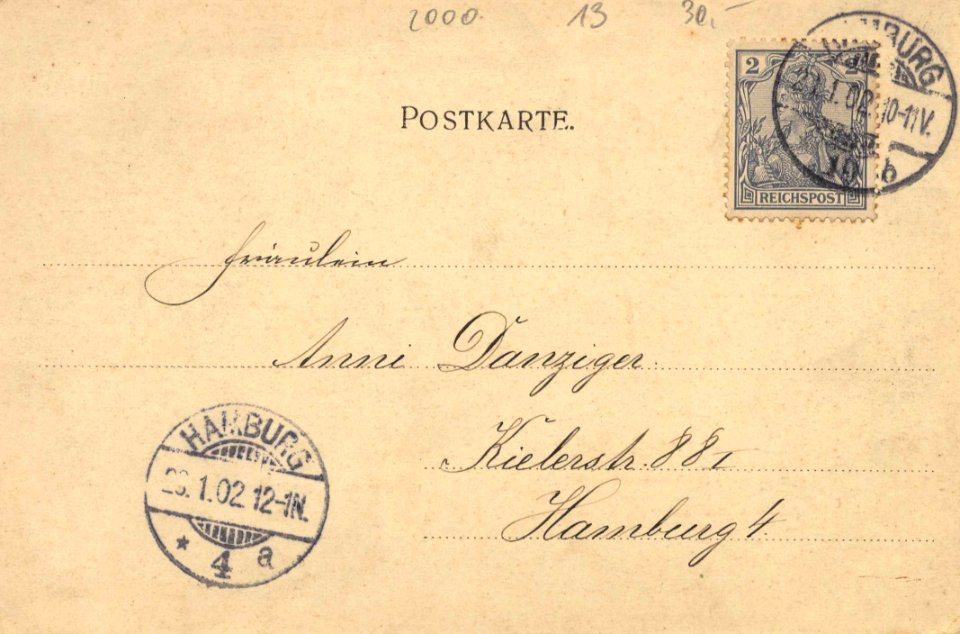 2000. 13 30.-
POSTKARTE.
HAMBURG
2 2
1.02. 10-11V.
REICHSPOST
Fräulein
Anni Danziger.
Kielerstr. 88 I
Hamburg 4
HAMBURG
1.02. 12-1N.
* 4 a